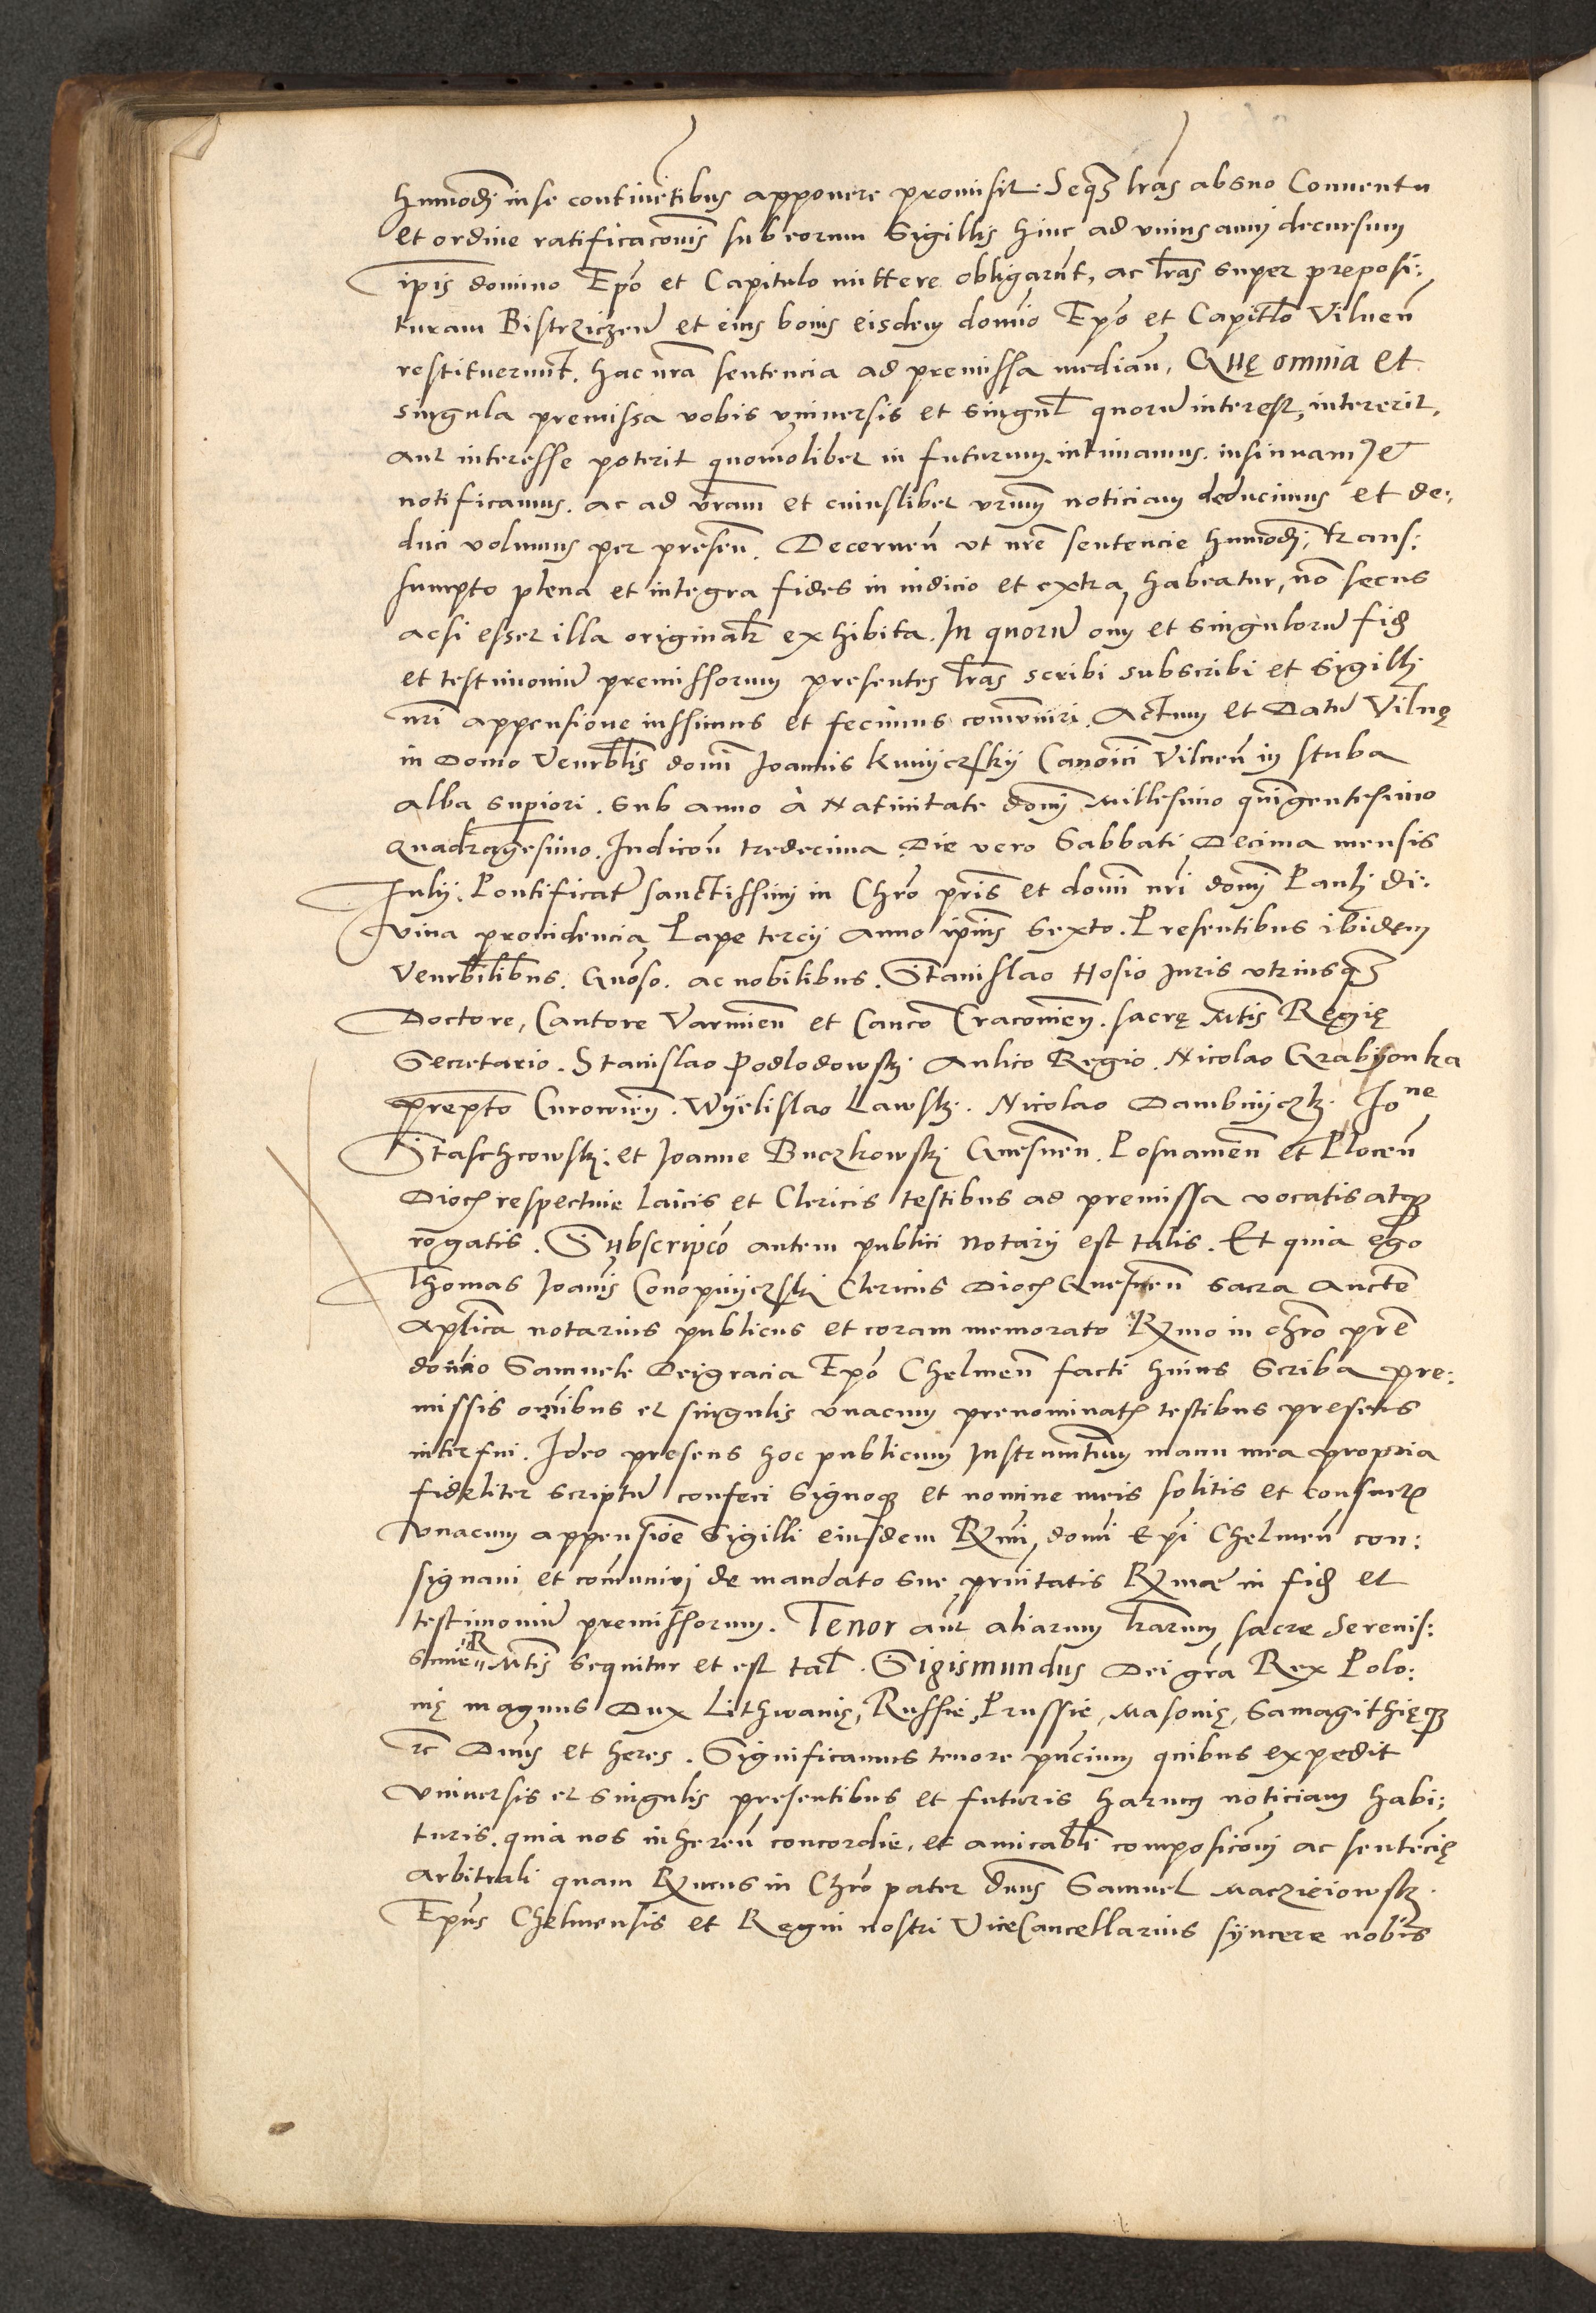 hmoõi in se continẽtibus apponere promisit. Seqз lrãs ab suo Conuentu
et ordine ratificacõnis sub eorum Sigillis hinc ad vnius anni decursum
ipis domino Epõ et Capitulo mittere obligarũt, ac lrãs super preposi:
turam Bistrziczeñ et eius bonis eisdem domĩo Epõ et Capitlo Vilneñ
restituerunt. hac nrã sentencia ad premissa mediañ. Quę omnia et
singula premissa vobis vniuersis et singul quorũ interest, intererit,
aut interesse poterit quomõlibet in futurum. intimamus. insinuam9 et
notificamus. ac ad vrãm et cuiuslibet vrũm noticiam deducimus et de:
duci volumus per preseñ. Decerneñ vt nrẽ sentencie hmoõi, trans:
sumpto plena et integra fides in iudicio et extra, habeatur, nõ secus
acsi esset illa originalr exhibita. In quorũ om̃ et singulorũ fid
et testimoniũ premissorum presentes lrãs scribi subscribi et Sigilli
nrĩ appensione iussimus et fecimus com̃uniri. Actum et Datũ Vilnę
in Domo Venerblis domĩ Joannis Kunyczskij Canõici Vilneñ in stuba
alba superiori. sub anno à Natiuitate domĩ Millesimo quĩgentesimo
Quadragesimo. Indicõn tredecima Die vero Sabbati Decima mensis
Julij. Pontificat9 sanctissimi in Chrõ prĩs et domĩ nrĩ domĩ Pauli di:
vina prouidencia Pape tercij Anno ipius sexto. Presentibus ibidem
Venerbilibus. Gnõso. ac nobilibus. Stanislao Hosio Juris vtriusqз
Doctore, Cantore Varmieñ et Canco Cracouien. sacrę Mtis Regię
Secretario. Stanislao Podlodowskj Aulico Regio. Nicolao Grabyonka
prepto Curowien. Wyelislao Lawskj. Nicolao Dambnyczkj. Jone
Staschcowskj. et Joanne Buczkowskj Gnesneñ. Posnanieñ et Ploceñ
Dioc respectiue laicis et Clericis testibus ad premissa vocatis atqз
rogatis. Subscripcõ autem publici Notarij est talis. Et quia ego
Thomas Joannis Conopnyczskj Clericus Dioc Gnesneñ sacra Auctẽ
Aplica notarius publicus et coram memorato Rmo in chrõ prẽ
domĩo Samuele Dei gracia Epõ Chelmeñ facti huius Scriba pre:
missis om̃ibus et singulis vnacum prenominatis testibus presens
interfui. Ideo presens hoc publicum Instrumtum manu mea propria
fideliter scriptũ confeci Signoqз et nomine meis solitis et consuetis
vnacum appensiõe Sigilli eiusdem Rmi domĩ Epĩ Chelmeñ con:
signaui et com̃uniuj de mandato sue pr̃nitatis Rmae in fid et
testimoniũ premissorum. Tenor aũt aliarum lrãrum sacre Serenis:
sime R Mtis sequitur et est tal. Sigismundus Dei grã Rex Polo:
nię magnus Dux Lithwanię, Russie, Prussie, Masouię, Samagithięqз
etc Dñus et heres. Significamus tenore pñcium quibus expedit
Vniuersis et singulis presentibus et futuris harum noticiam habi:
turis. quia nos inhereñ concordie, et amicabli composicõni ac sentẽcię
arbitrali quam Rmus in Chrõ pater dñus Samuel Maczieiowskj
Epũs Chelmensis et Regni nostri ViceCancellarius syncere nobis